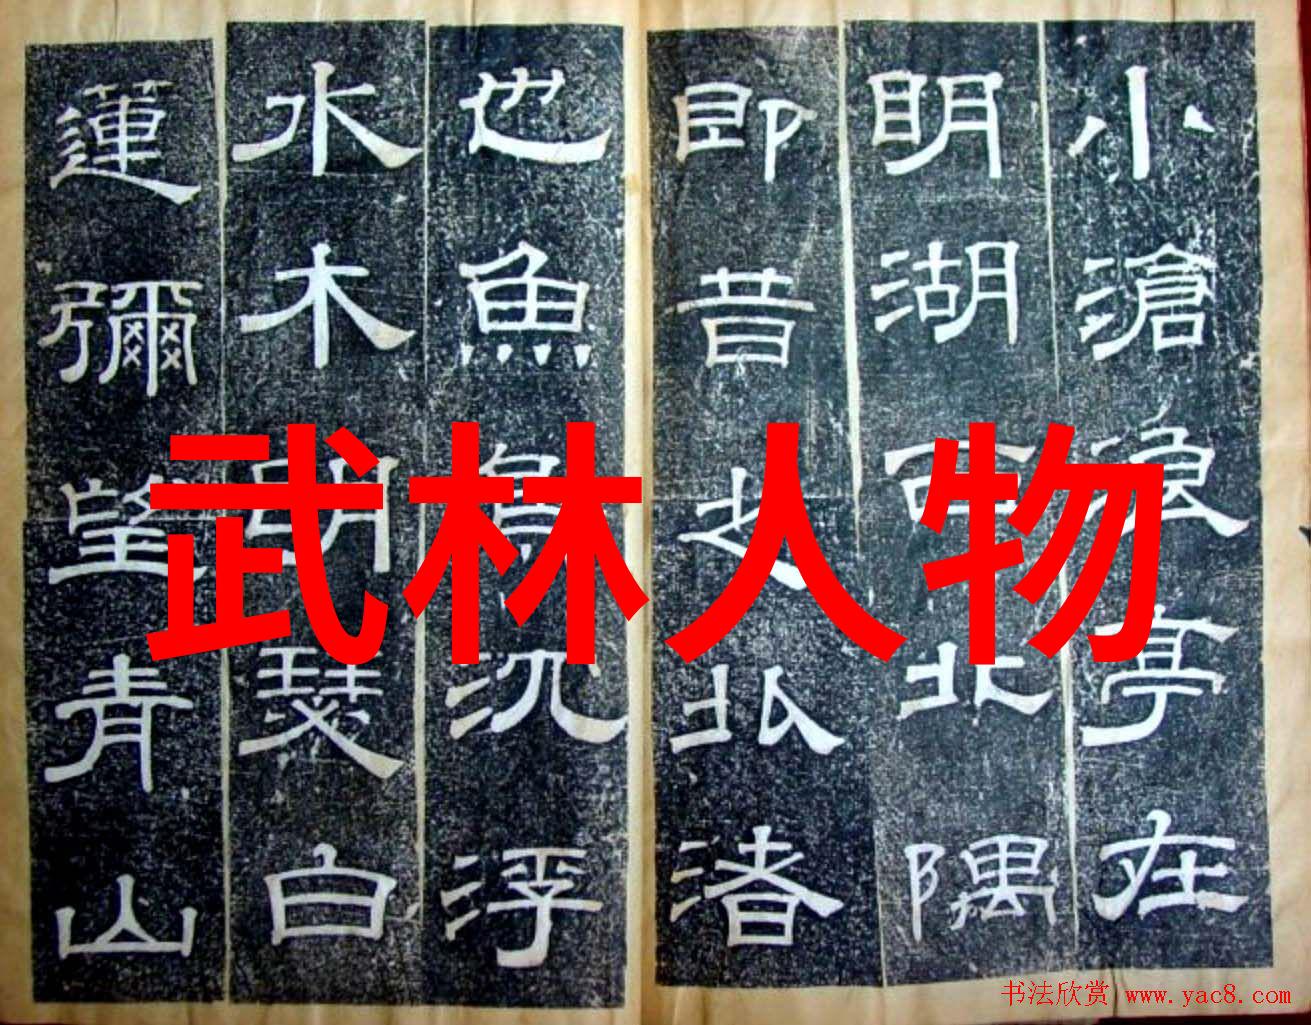 小滄浪亭在
明湖西北隅
即昔之北渚
也魚鳥沉浮
水木明瑟白
蓮彌望青山
武林人物
书法欣赏 www.yac8.com